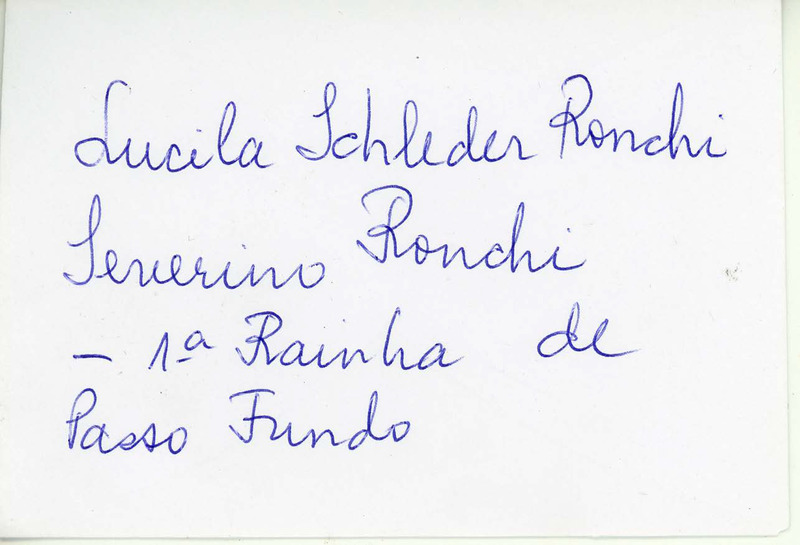 Lucila Schleder Ronchi
Severino Ronchi
- 1ª Rainha de
Passo Fundo